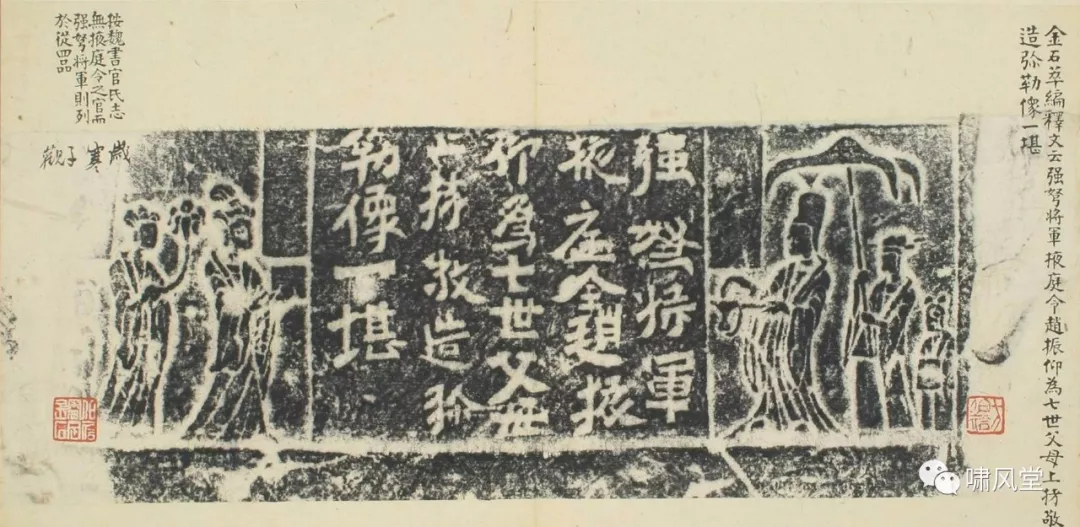 金石萃編釋文云强弩将軍掖庭令趙振仰為七世父母上㧣敬
造弥勒像一堪
强弩将軍
掖庭令趙振
仰為七世父母
上㧣敬造弥
勒像一堪
按魏書官氏志
無掖庭令之官而
强弩将軍則列
於從四品
歲寒子觀
啸风堂